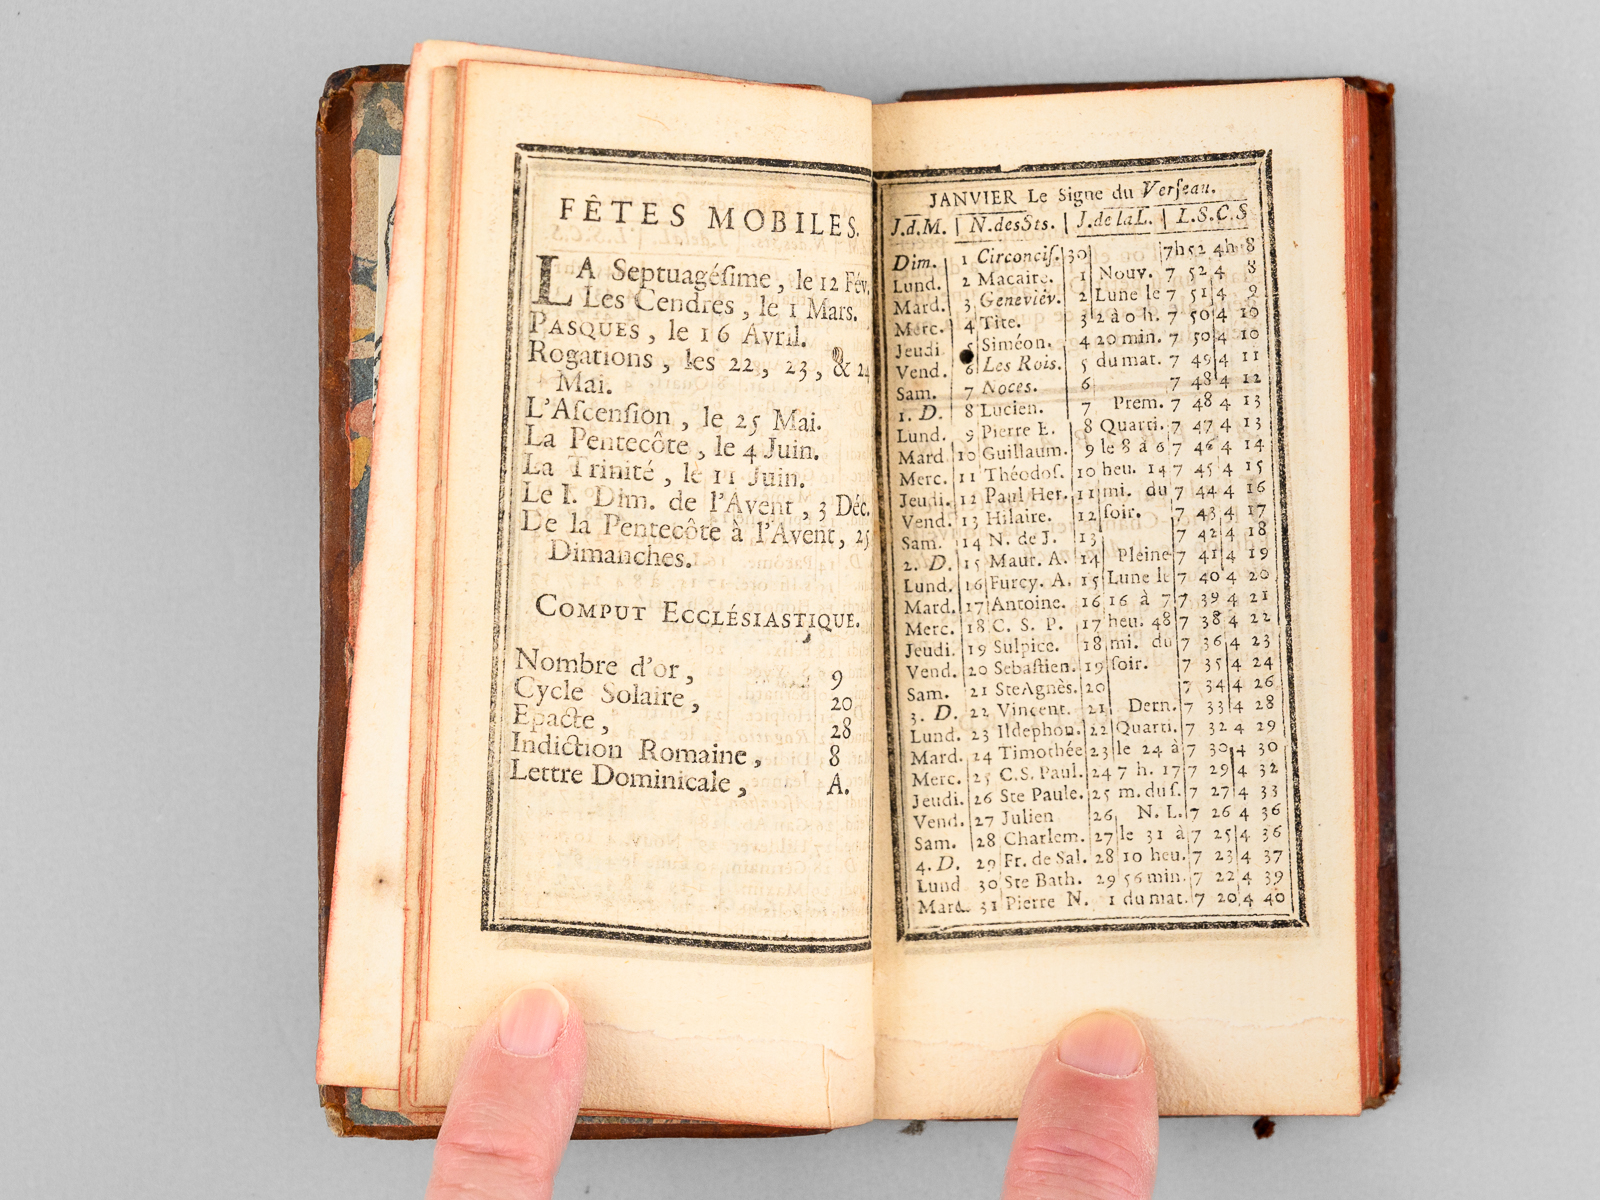 FÊTES MOBILES.
LA Septuagéſime, le 12 Fév.
Les Cendres, le 1 Mars.
PASQUES, le 16 Avril.
Rogations, les 22, 23, & 24
Mai.
L'Aſcenſion, le 25 Mai.
La Pentecôte, le 4 Juin.
La Trinité, le 11 Juin.
Le I. Dim. de l'Avent, 3 Déc.
De la Pentecôte à l'Avent, 25
Dimanches.
COMPUT ECCLÉSIASTIQUE.
Nombre d'or, 9
Cycle Solaire, 20
Epacte, 28
Indiction Romaine, 8
Lettre Dominicale, A.
JANVIER Le Signe du Verſeau.
J.d.M. | N.desSts. | J.de laL. | L.S.C.S
Dim. 1 Circonciſ. 30 7h 52 4h 8
Lund. 2 Macaire. 1 Nouv. 7 52 4 8
Mard. 3 Geneviév. 2 Lune le 7 51 4 9
Merc. 4 Tite. 3 2 à 0 h. 7 50 4 10
Jeudi 5 Siméon. 4 20 min. 7 50 4 10
Vend. 6 Les Rois. 5 du mat. 7 49 4 11
Sam. 7 Noces. 6 7 48 4 12
1. D. 8 Lucien. 7 Prem. 7 48 4 13
Lund. 9 Pierre E. 8 Quarti. 7 47 4 13
Mard 10 Guillaum. 9 le 8 à 6 7 46 4 14
Merc. 11 Théodoſ. 10 heu. 14 7 45 4 15
Jeudi. 12 Paul Her. 11 mi. du 7 44 4 16
Vend. 13 Hilaire. 12 ſoir. 7 43 4 17
Sam. 14 N. de J. 13 7 42 4 18
2. D. 15 Maur. A. 14 Pleine 7 41 4 19
Lund. 16 Furcy. A. 15 Lune le 7 40 4 20
Mard. 17 Antoine. 16 16 à 7 7 39 4 21
Merc. 18 C. S. P. 17 heu. 48 7 38 4 22
Jeudi. 19 Sulpice. 18 mi. du 7 36 4 23
Vend. 20 Sebaſtien. 19 ſoir. 7 35 4 24
Sam. 21 SteAgnès. 20 7 34 4 26
3. D. 22 Vincent. 21 Dern. 7 33 4 28
Lund. 23 Ildephon. 22 Quarti. 7 32 4 29
Mard. 24 Timothée 23 le 24 à 7 30 4 30
Merc. 25 C.S. Paul. 24 7 h. 17 7 29 4 32
Jeudi. 26 Ste Paule. 25 m. du ſ. 7 27 4 33
Vend. 27 Julien 26 N. L. 7 26 4 36
Sam. 28 Charlem. 27 le 31 à 7 25 4 36
4. D. 29 Fr. de Sal. 28 10 heu. 7 23 4 37
Lund 30 Ste Bath. 29 56 min. 7 22 4 39
Mard. 31 Pierre N. 1 du mat. 7 20 4 40